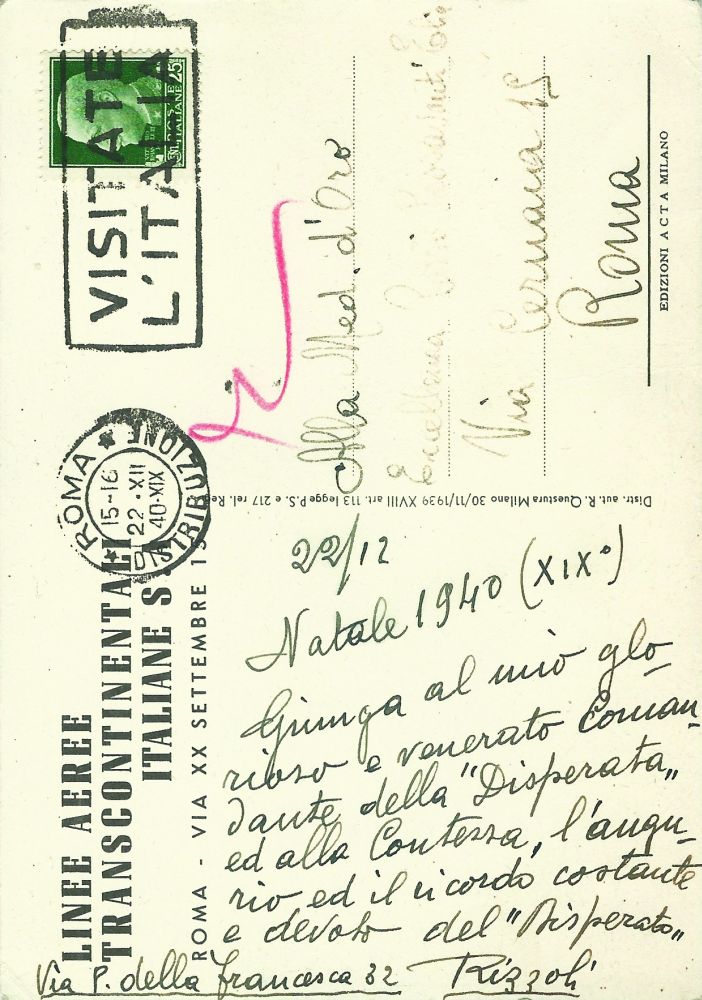 VISITATE
L'ITALIA
POSTE
ITALIANE
25
ROMA
DISTRIBUZIONE
15-16
22·XII
40·XIX
LINEE AEREE
TRANSCONTINENTALI
ITALIANE S
ROMA - VIA XX SETTEMBRE 1
Alla Med. d'Oro
Eccellenza
Via Cernaia 15
Roma
EDIZIONI ACTA MILANO
Distr. aut. R. Questura Milano 30/11/1939 XVIII art. 113 legge P.S. e 217 rel. Reg
22/12
Natale 1940 (XIX°)
Giunga al mio glo-
rioso e venerato Coman-
dante della "Disperata"
ed alla Contessa, l'augu-
rio ed il ricordo costante
e devoto del "Disperato"
Rizzoli
Via P. della Francesca 32